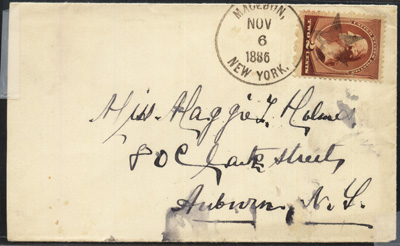 MACEDON,
NOV
6
1886
NEW YORK.
Miss Maggie J. Holmes
80 Clark Street,
Auburn, N.Y.